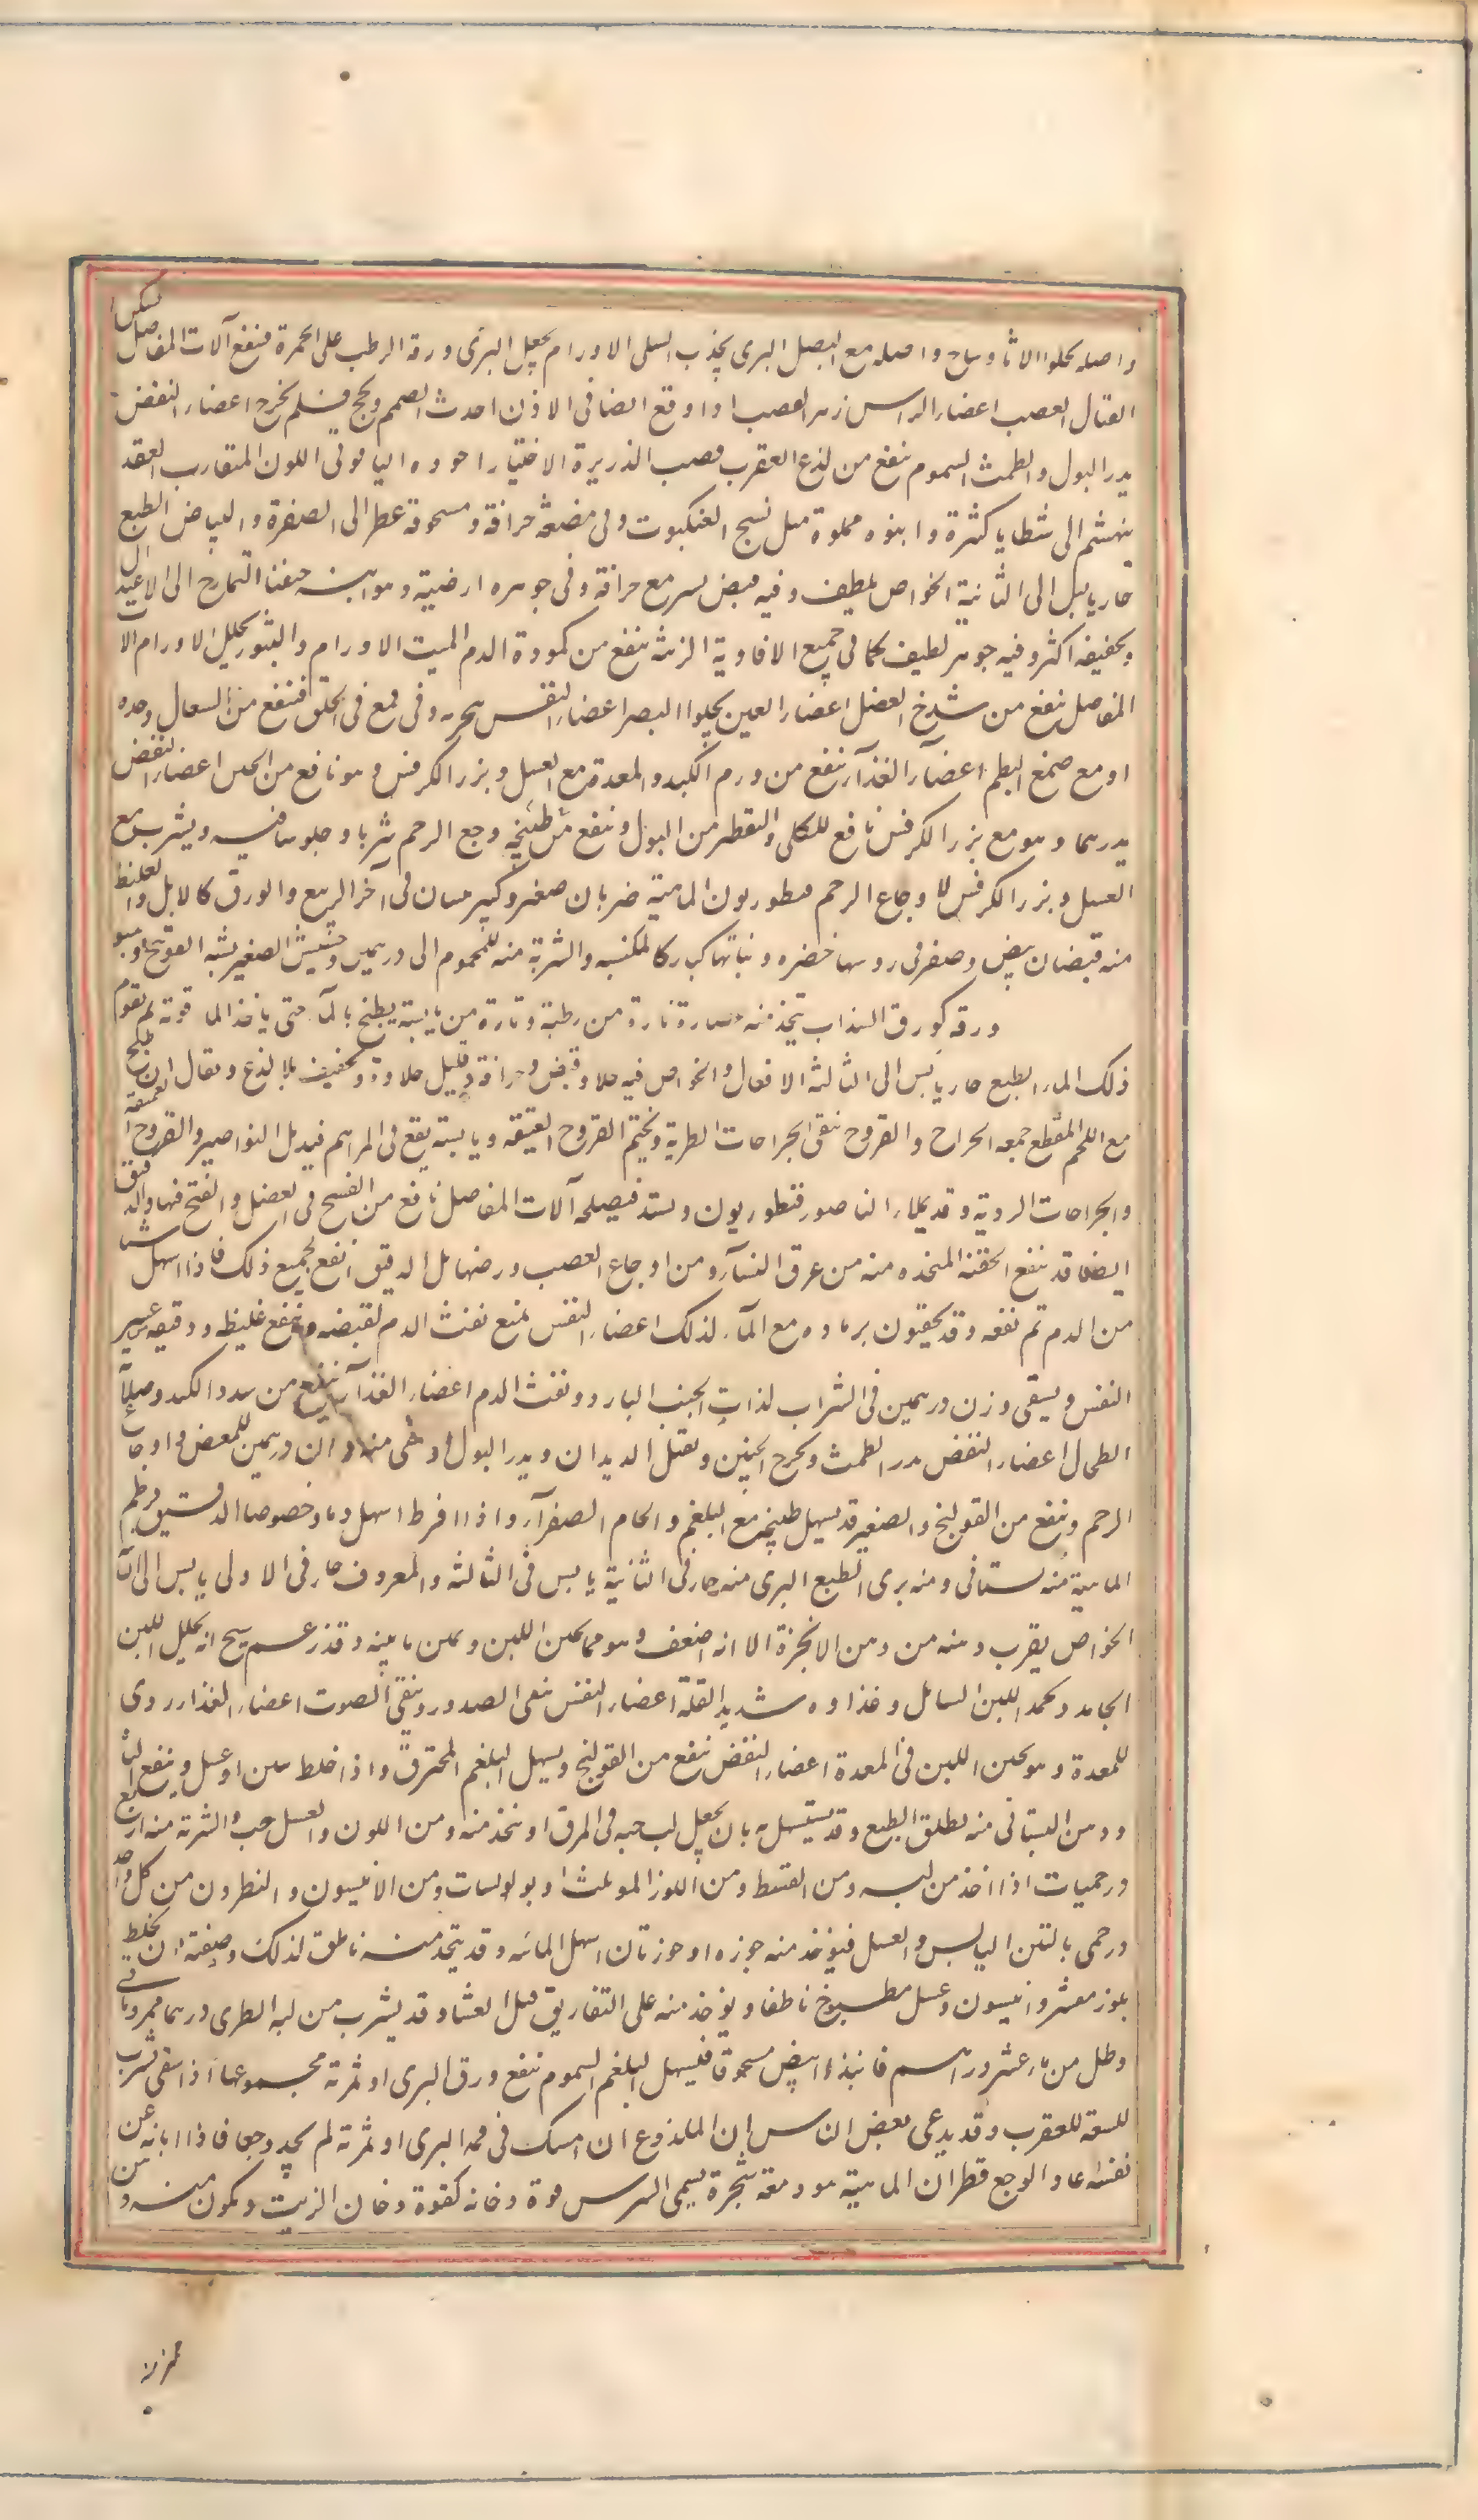 واصله يجلوا الاثار وساح واصله مع البصل البرى يجذب السلى الاورام يجعل البرى ورقه الرطب على الحمرة فينفع آلات المفاصل يسكن ا
القتال العصب اعضاء الراس زهر القصب اذا وقع ايضا فى الاذن احدث الصمم ولحج فيه فلم يخرج اعضاء النفض
يدر البول والطمث السموم ينفع من لذع العقرب قصب الذريرة الاختيار اجوده الياقوتى اللون المتقارب العقد
ينهشم الى شظايا كثيرة وانبوبه مملوة مثل نسج العنكبوت وفى مضغه حرافة ومسحوقه عطر الى الصفرة والبياض الطبع
حار يابس الى الثانية الخواص لطيف وفيه قبض يسير مع حرافة وفى جوهره ارضية وهوائية متفنا التمازج الى الاعتدال
وتجفيفه اكثر وفيه جوهر لطيف كما فى جميع الافاوية الزينة ينفع من كمودة الدم الميت الاورام والبثور يحلل الاورام الا
المفاصل ينفع من شدخ العضل اعضاء العين يجلوا البصر اعضاء النفس بخوره وفى قمع فى الحلق فينفع من السعال وحده
او مع صمغ البطم اعضآء الغذآء ينفع من ورم الكبد والمعدة مع العسل وبزر الكرفس وهو نافع من الحبن اعضاء النفض
يدرهما وهو مع بزر الكرفس نافع للكلى والتقطر من البول وينفع من طبيخه وجع الرحم شربا وجلوسا فيه ويشرب مع
العسل وبزر الكرفس لاوجاع الرحم قنطوريون الماهية ضربان صغير وكبير ينبتان فى آخر الربيع والورق كالابل والغليظ
منه قبضان بيض وصفر فى روسها خضره ونباتها كبار كالمكنسه والشربة منه للمحموم الى درهمين وحشيش الصغير يشبه الفوتنج وهو
ورقه كورق السذاب يتخذ منه عصارة تارة من رطبة وتارة من يابسة يطبخ بالمآء حتى ياخذ الماء قوته ثم يقوم
ذلك الماء الطبع حار يابس الى الثالثة الافعال والخواص فيه جلاء وقبض وحرافة وقليل حلاوة وتجفيف بلا لذع ويقال ان طبخ
مع اللحم المقطع جمعه الجراح والقروح ينقى الجراحات الطرية ويختم القروح العتيقة ويابسته يقع فى المراهم فيدمل النواصير والقروح العميقة
والجراحات الردية وقد يملاء الناصور قنطوريون ويشد فيصلحه آلات المفاصل نافع من الفسخ فى العضل والفتح فيها والدقيق
ايضا قد ينفع الحقنة المتخذه منه من عرق النسآء ومن اوجاع العصب ورضها بل الدقيق انفع لجميع ذلك فاذا اسهل شيا
من الدم تم نفعه وقد يحقنون برماده مع المآء لذلك اعضاء النفس يمنع نفث الدم لقبضه وينفع غليظه ودقيقه من عسر
النفس ويسقى وزن درهمين فى الشراب لذات الجنب البارد ونفث الدم اعضاء الغذآء ينفع من سدد الكبد وصلابة
الطحال اعضاء النفض يدر الطمث ويخرج الجنين ويقتل الديدان ويدر البول وسقى منه وزن درهمين للمغص واوجاع
الرحم وينفع من القولنج والصغير قد يسهل طبيخه مع البلغم والخام الصفرآء واذا افرط اسهل دما وخصوصا الدقيق قرطم
الماهية منه بستانى ومنه برى الطبع البرى منه حار فى الثانية يابس فى الثالثة والمعروف حار فى الاولى يابس الى الثا
الخواص يقرب دهنه من دهن الانجرة الا انه اضعف وهو مما يجبن اللبن ويميز مائيته وقد زعم مسيح انه يحلل اللبن
الجامد ويجمد اللبن السائل وغذاوه شديد القلة اعضاء النفس ينقى الصدور وينقى الصوت اعضاء الغذاء ردى
للمعدة وهو يجبن اللبن فى المعدة اعضاء النفض ينفع من القولنج ويسهل البلغم المحترق واذا خلط بتين او عسل وينفع البا
ودهن البستانى منه يطلق الطبع وقد يستسهل به بان يجعل لب حبه فى المرق او يتخذ منه ومن اللوز والعسل حب والشربة منه اربع
درخميات اذا اخذ من لبه ومن القسط ومن اللوز المو ثلث ا وبولوسات ومن الانيسون والنطرون من كل واحد
درخمى بالتين اليابس والعسل فيؤخذ منه جوزه او جوزتان اسهل المائيه وقد يتخذ منه ناطف لذلك وصفته ان يخلط
بلوز مقشر وانيسون وعسل مطبوخ ناطفا ويؤخذ منه على التفاريق قبل العشاء وقد يشرب من لبه الطرى درهما ممروسا فى
رطل من ماء عشر دراهم فانيذا ابيض مسحوقا فيسهل البلغم السموم ينفع ورق البرى او ثمرته مجموعها اذا سقى بشرب
للسعة للعقرب وقد يدعى بعض الناس ان الملذوع ان امسك فى فمه البرى او ثمرته لم يجد وجعا فاذا ابانه عن
نفسه عاد الوجع قطران الماهية هو دمعة شجرة يسمى الشربين قوة دخانه كقوة دخان الزيت ويكون منه دهن و